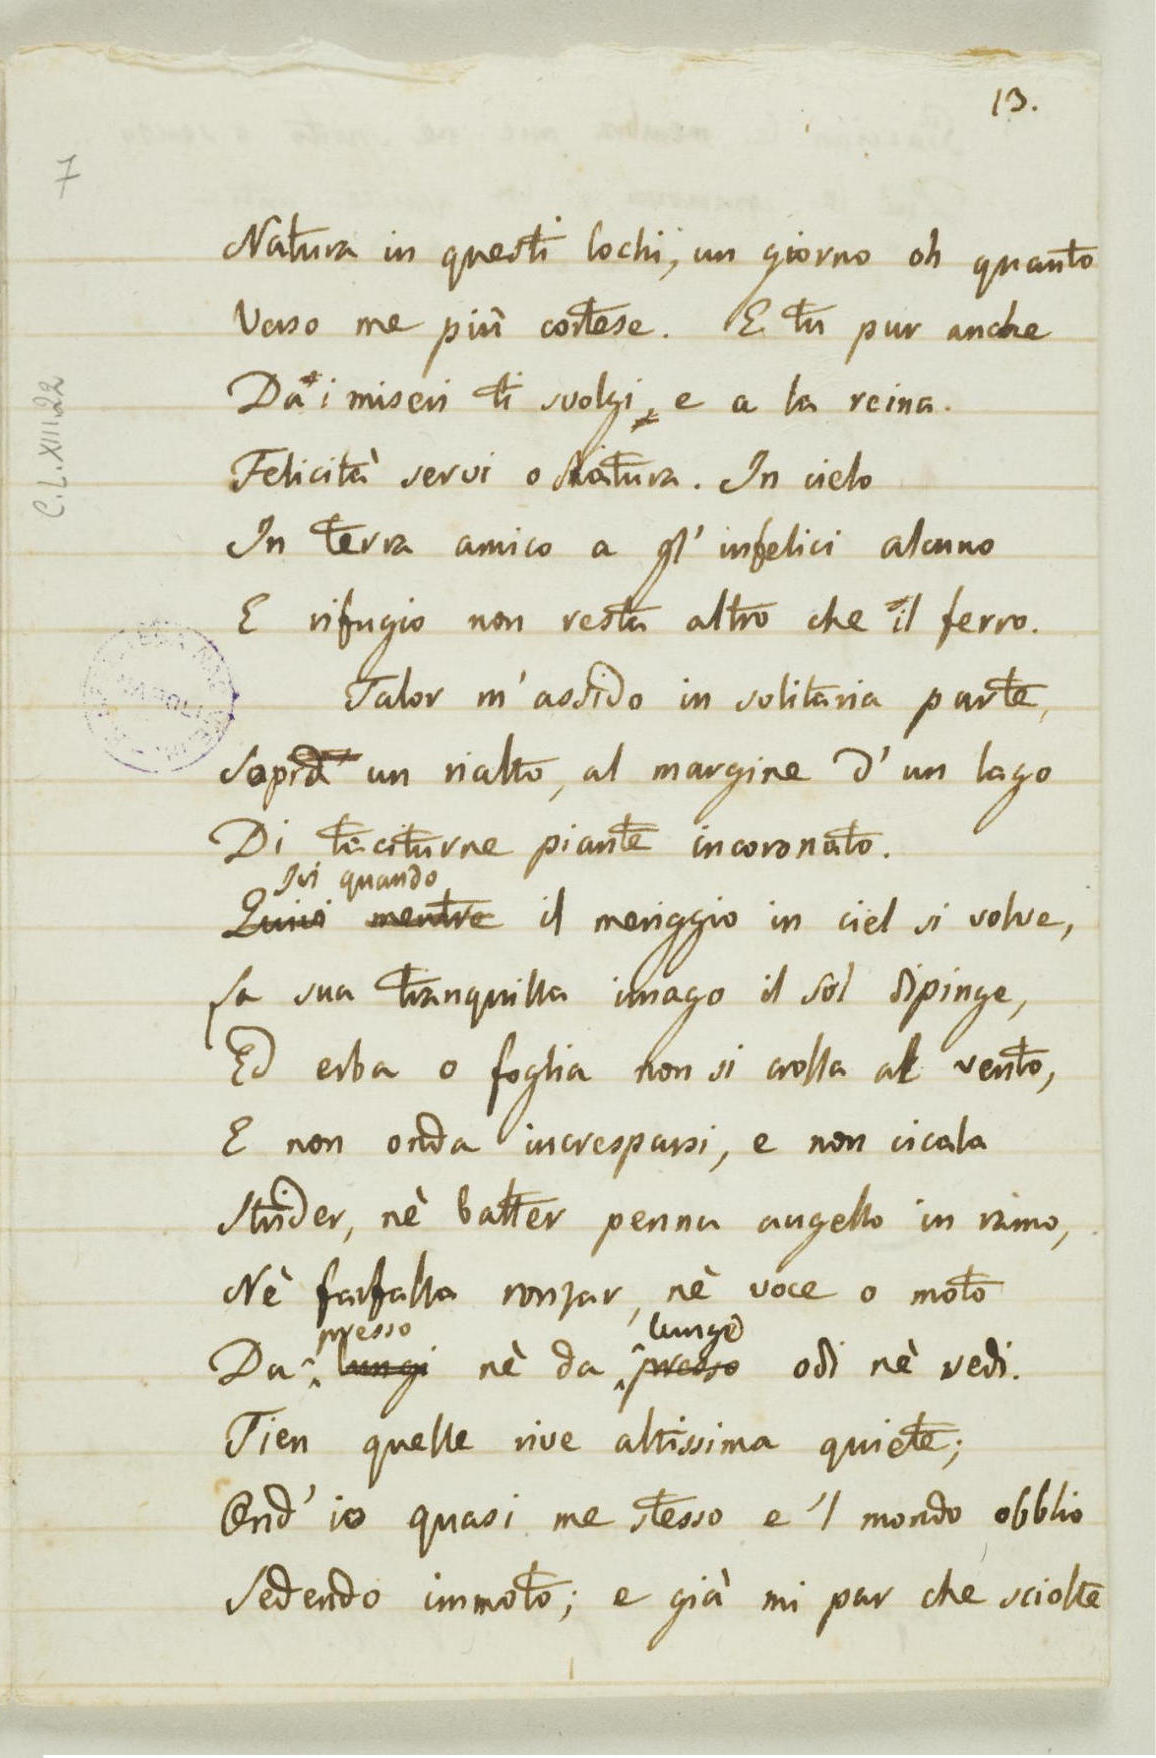 13.
7
C.L.XIII.22
Natura in questi lochi, un giorno oh quanto
Verso me più cortese. E tu pur anche
Da i miseri ti svolgi, e a la reina
Felicità servi o Natura. In cielo
In terra amico a gl' infelici alcuno
E rifugio non resta altro che il ferro.
Talor m' assido in solitaria parte,
Sopra un rialto, al margine d' un lago
Di taciturne piante incoronato.
Ivi quando
Quivi mentre il meriggio in ciel si volve,
La sua tranquilla imago il Sol dipinge,
Ed erba o foglia non si crolla al vento,
E non onda incresparsi, e non cicala
Strider, nè batter penna augello in ramo,
Nè farfalla ronzar, nè voce o moto
presso lunge
Da lungi nè da presso odi nè vedi.
Tien quelle rive altissima quiete;
Ond' io quasi me stesso e 'l mondo obblio
Sedendo immoto; e già mi par che sciolte